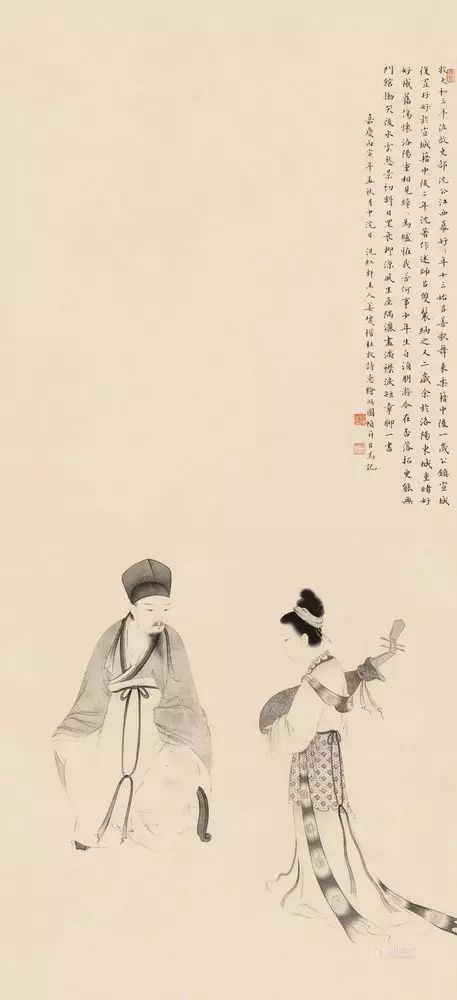 牧大和三年佐故吏部沈公江西幕好好年十三始以善歌舞来樂籍中後一歲公鎮宣城
復置好好於宣城籍中後二年沈著作述師以雙鬟納之又二歲余於洛陽東城重睹好
好感舊傷懷洛陽重相見婥婥為當壚怪我苦何事少年生白須朋游今在否落拓更能無
門館慟哭後水雲愁景初斜日掛衰柳涼風生座隅灑盡滿襟淚短章聊一書
嘉慶丙寅年孟秋月中浣日 洗紅軒主人姜壎楷杜牧詩意繪此圖幀并以為記